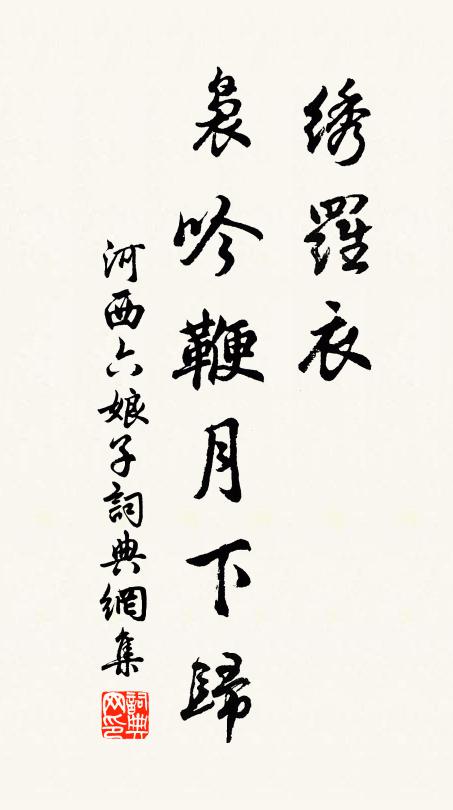 綉羅衣
裊吟鞭月下歸
河西六娘子詞典網集
詞典網印